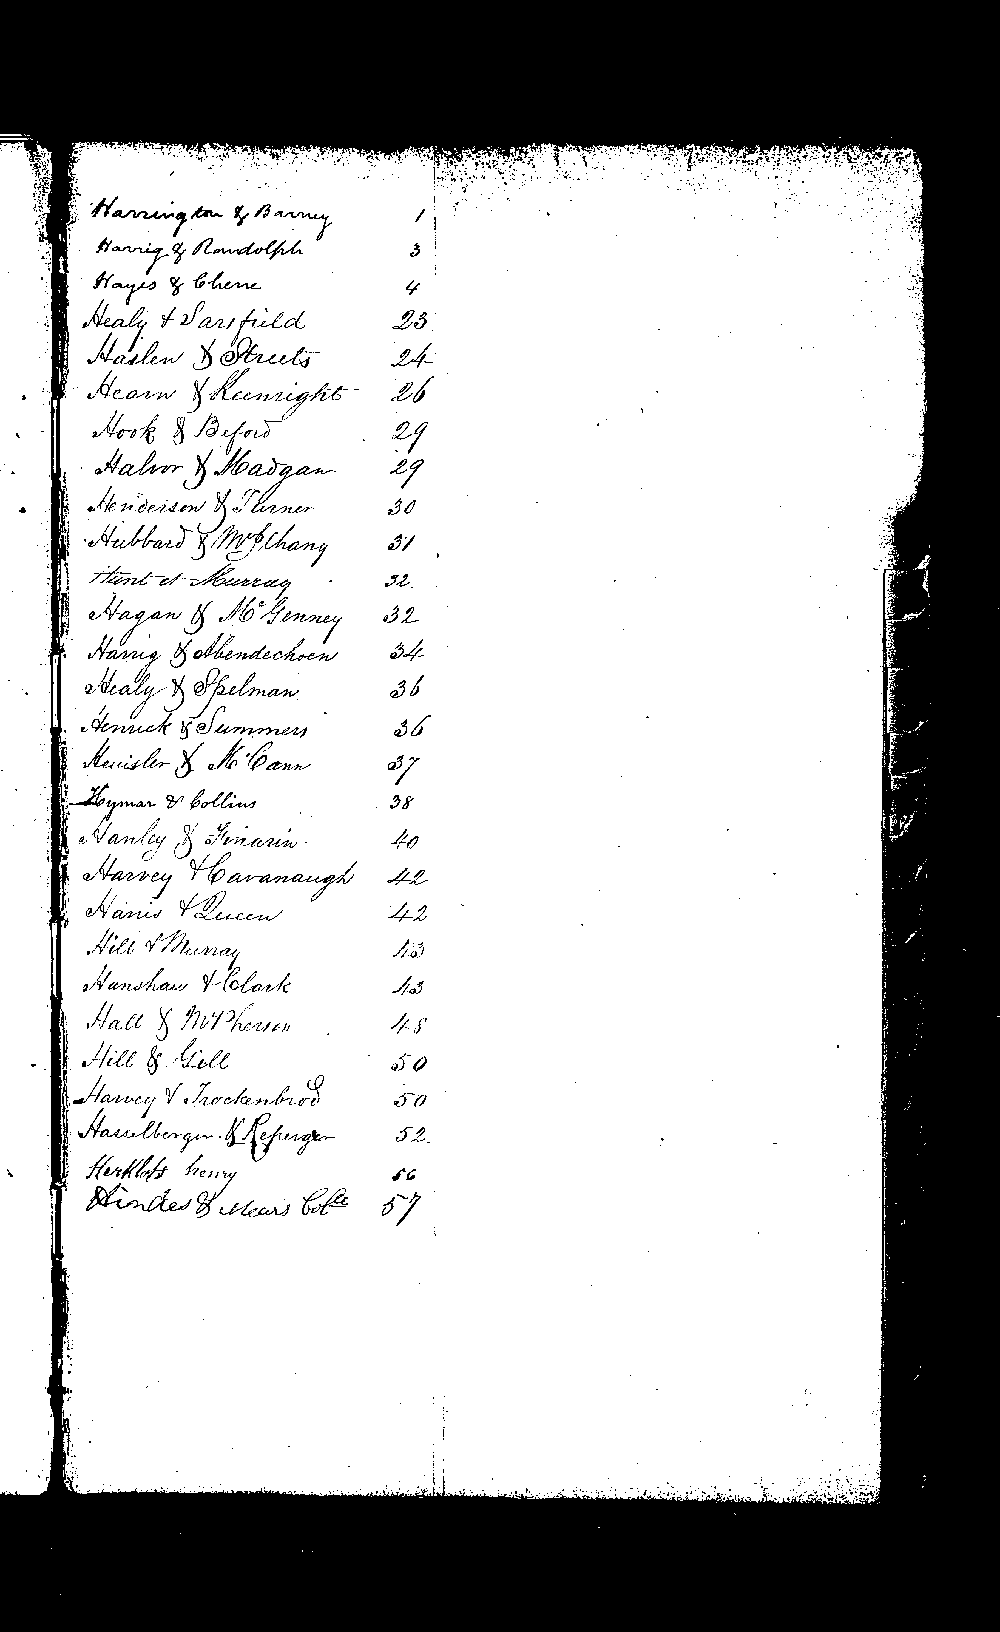 Harrington & Barney 1
Harrig & Randolph 3
Hayes & Chene 4
Healy & Sarsfield 23
Haslen & Streets 24
Hearn & Keenright 26
Hook & Beford 29
Halvor & Madgan 29
Henderson & Turner 30
Hubbard & 31
Hunt et Murray 32
Hagan & McGenney 32
Harrig & Abendechoen 34
Healy & Spelman 36
Henrick & Summers 36
Heuisler & McCann 37
Hymar & Collins 38
Hanley & Finarin 40
Harvey & Cavanaugh 42
Harris & Queen 42
Hill & Murray 43
Hanshaw & Clark 43
Hall & McPherson 48
Hill & Gill 50
Harvey & Trockenbrod 50
Hasselberger & 52
Herklots henry 56
Hindes & Mears 57